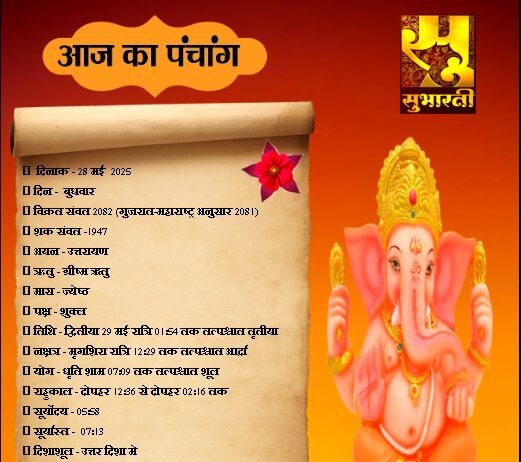 आज का पंचांग
सुभारती
दिनांक - 28 मई 2025
दिन - बुधवार
विक्रत संवत 2082 (गुजरात-महाराष्ट्र अनुसार 2081)
शक संवत -1947
अयन - उत्तरायण
ऋतु - ग्रीष्म ऋतु
मास - ज्येष्ठ
पक्ष - शुक्ल
तिथि - द्वितीया 29 मई रात्रि 01:54 तक तत्पश्चात तृतीया
नक्षत्र - मृगशिरा रात्रि 12:29 तक तत्पश्चात आर्द्रा
योग - धृति शाम 07:09 तक तत्पश्चात शूल
राहुकाल - दोपहर 12:36 से दोपहर 02:16 तक
सूर्योदय - 05:58
सूर्यास्त - 07:13
दिशाशूल - उत्तर दिशा मे